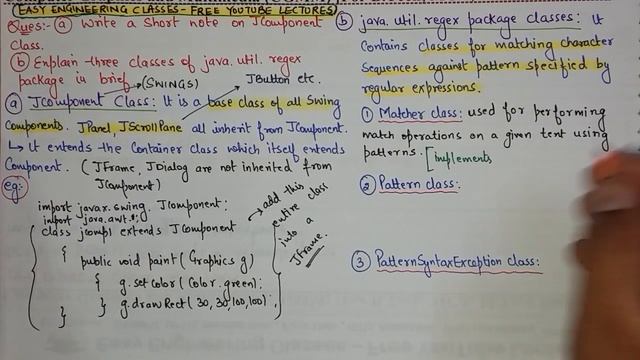 (EASY ENGINEERING CLASSES - FREE YOUTUBE LECTURES)
Ques:- (a) Write a Short note on JComponent
Class.
(b) Explain three classes of java.util.regex
package in brief
(SWINGS)
JButton etc.
(a) JComponent Class: It is a base class of all Swing
Components. JPanel, JScrollPane all inherit from JComponent.
↳ It extends the Container class which itself extends
Component. (JFrame, JDialog are not inherited from
JComponent)
eg:
import javax.swing.JComponent;
import java.awt.*;
class jcomp1 extends JComponent
{
public void paint(Graphics g)
{ g.setColor(Color.green);
g.drawRect(30, 30, 100, 100);
}
}
→ add this
entire class
into a
JFrame.
(b) java.util.regex package classes: It
Contains classes for matching character
Sequences against pattern specified by
regular expressions.
(1) Matcher class: used for performing
match operations on a given text using
patterns. [implements
(2) Pattern class:
(3) PatternSyntaxException class: